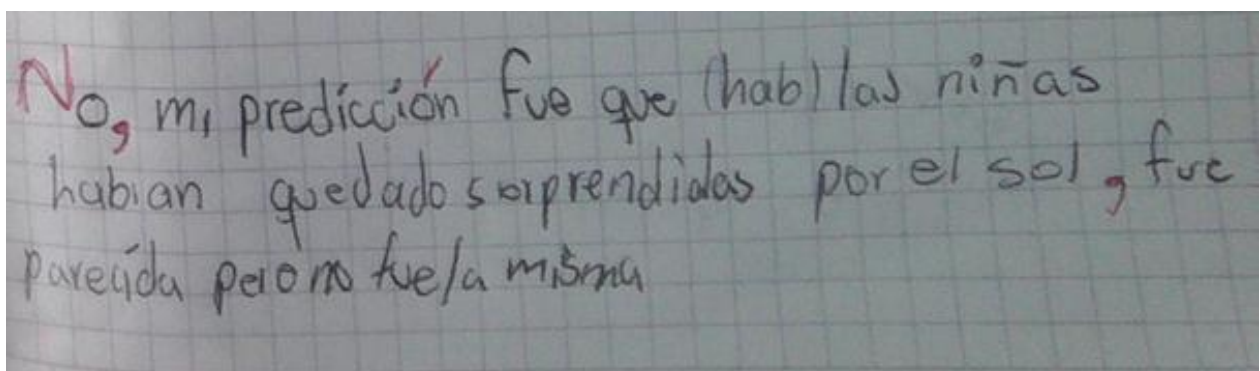 No, mi predicción fue que (hab) las niñas
habian quedado sorprendidas por el sol, fue
parecida pero no fue la misma